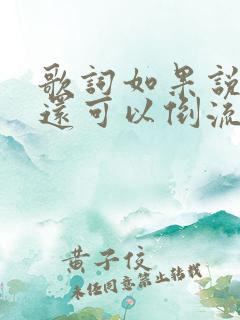 歌詞如果說
還可以倒流
黃子佼
未經同意禁止轉載